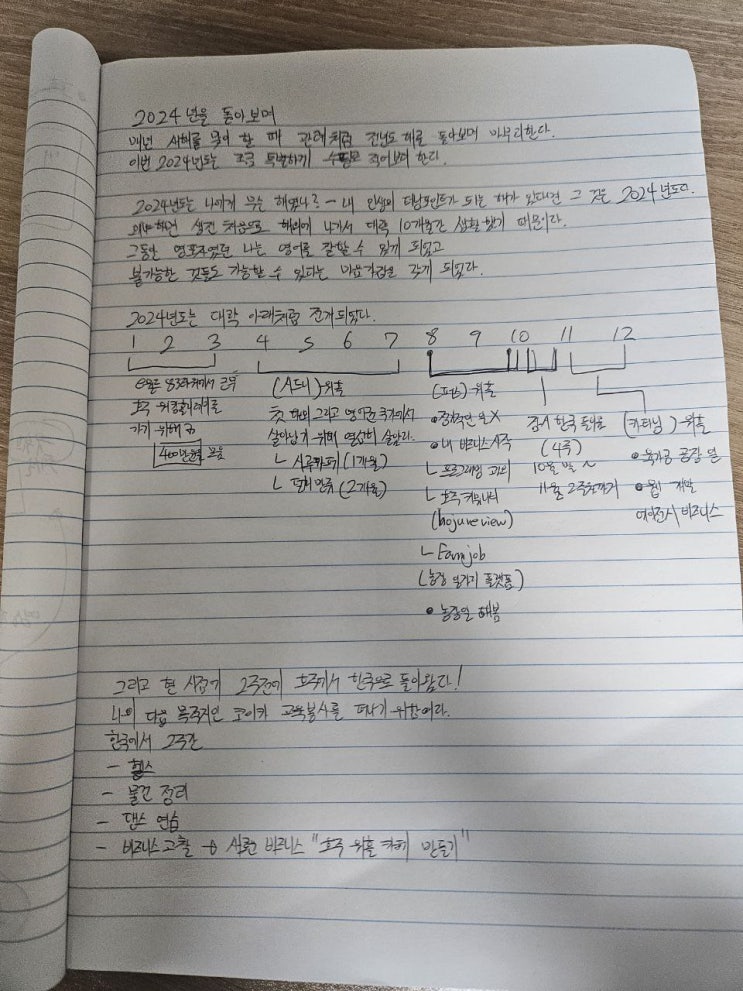 2024년을 돌아보며
매년 새해를 맞이 할 때 관례처럼 전년도 해를 돌아보며 마무리한다.
이번 2024년도는 조금 특별하게 수필로 적어보려 한다.
2024년도는 나에게 무슨 해였나? - 내 인생의 터닝포인트가 되는 해가 있다면 그 것은 2024년도다.
왜냐하면 생전 처음으로 해외에 나가서 대략 10개월간 생활했기 때문이다.
그동안 영포자였던 나는 영어를 잘할 수 있게 되었고
불가능한 것들도 가능할 수 있다는 마음가짐을 갖게 되었다.
2024년도는 대략 아래처럼 전개되었다.
1 2 3 4 5 6 7 8 9 10 11 12
근무
호주 워킹홀리데이를
가기 위해
400만원을 모음
(시드니) 워홀
첫 해외 그리고 영어권 국가에서
살아남기 위해 열심히 살았다.
ㄴ (1개월)
ㄴ (2개월)
(퍼스) 워홀
• 정기적인 일 X
• 내 비즈니스 시작
ㄴ 프로그래밍 과외
ㄴ 호주 커뮤니티
(hojureview)
ㄴ Farmjob
(농장 일자리 플랫폼)
• 농장일 해봄
잠시 한국 들어옴
(4주)
10월 말 ~
11월 2주차까지
(카타닝) 워홀
• 육가공 공장 일
• 웹 개발
비즈니스
그리고 현 시점에 2주전에 호주에서 한국으로 돌아왔다!
나의 다음 목적지인 코이카 교육봉사를 떠나기 위함이다.
한국에서 2주간
- 헬스
- 물건 정리
- 댄스 연습
- 비즈니스 고찰 → 시작한 비즈니스 "호주 워홀 카페 만들기"